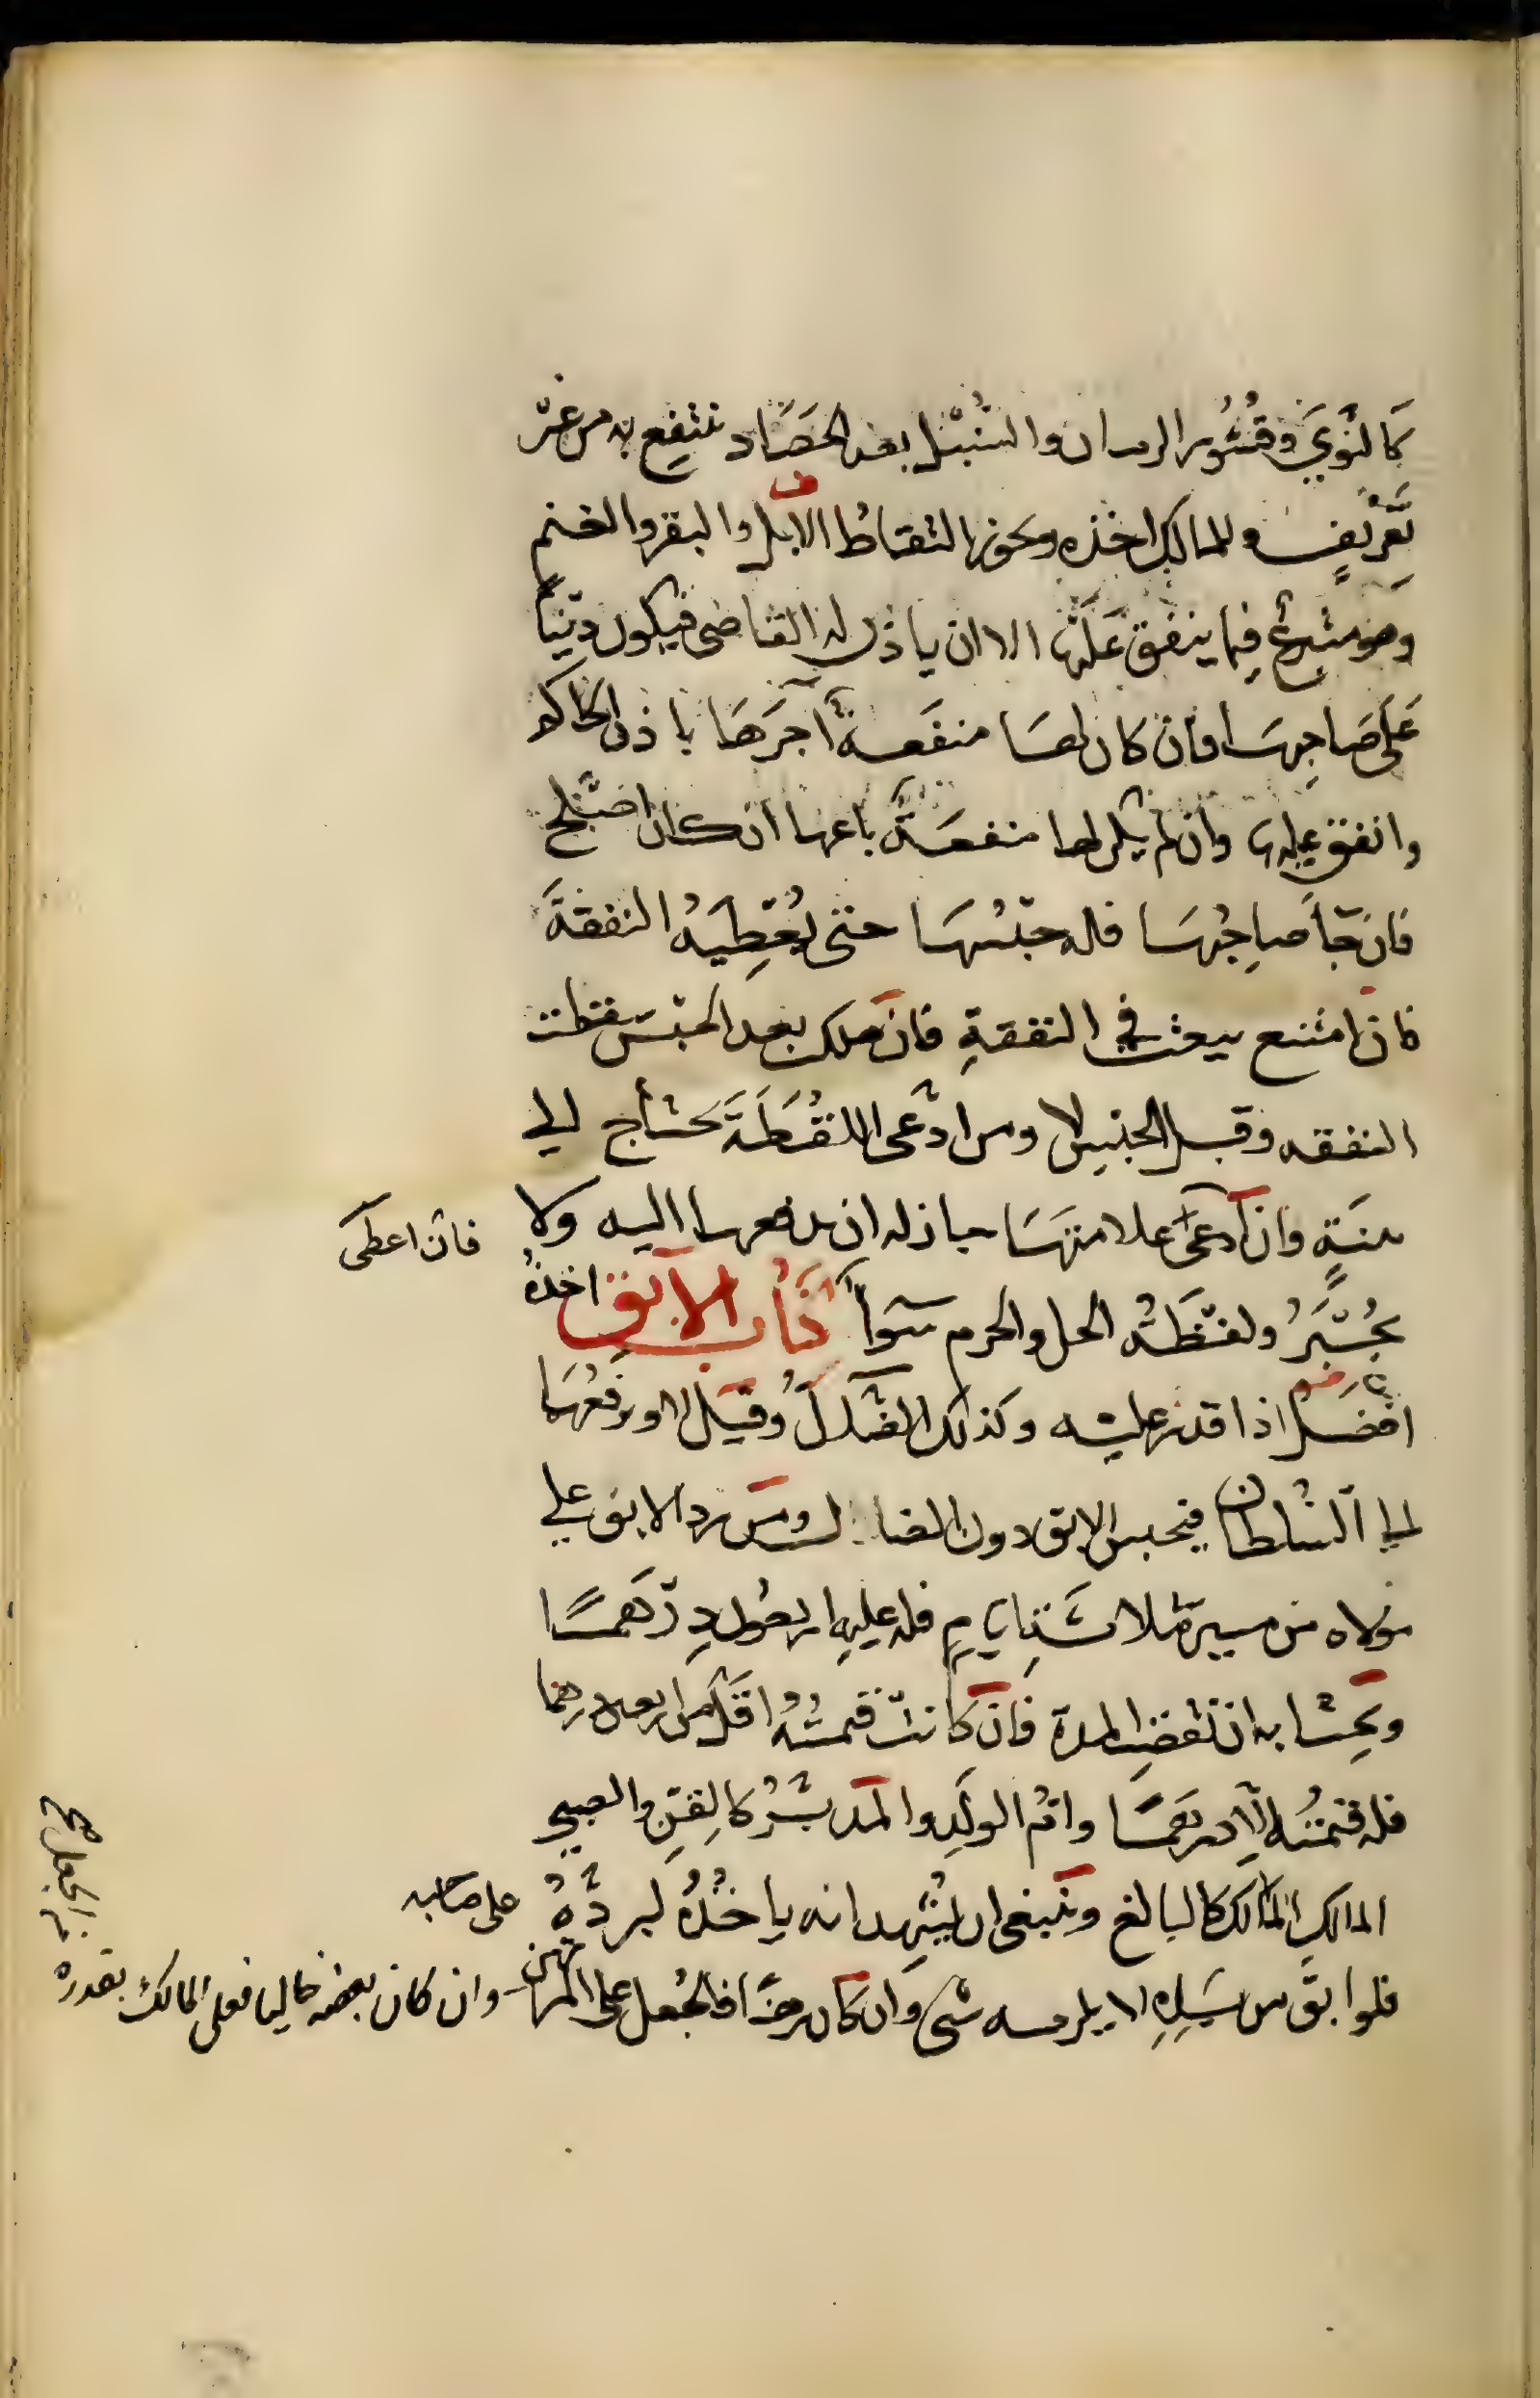 كالنوى وقشور الرمان والسنبل بعد الحصاد ينتفع به من غير
تعريف وللمالك اخذه ويجوز التقاط الابل والبقر والغنم
وهو متبرع فيما ينفق عليها الا ان ياذن له القاضى فيكون دينًا
على صاحبها فان كان لها منفعة آجرها باذن الحاكم
وانفق عليها وان لم يكن لها منفعة باعها ان كان اصلح
فان جا صاحبها فله حبسها حتى يعطيه النفقة
فان امتنع بيعت في النفقة فان هلك بعد الحبس سقطت
النفقه وقبل الحبس لا ومن ادعى اللقطة يحتاج الى
بينة فان اعطى علامتها جاز له ان يدفعها اليه ولا
يجبر ولقطة الحل والحرم سوآ كتاب الابق اخذه
افضل اذا قدر عليه وكذلك الضال وقيل لا ويرفعهما
الى السلطان فيحبس الابق دون الضال ومن رد الابق على
مولاه من مسيرة ثلاثة ايام فله عليه اربعون درهمًا
وبحسابه ان نقضت المدة فان كانت قيمته اقل من اربعين درهما
فله قيمته الا درهمًا وام الولد والمدبر كالقن والصبي
المالك كالبالغ وينبغى ان يشهد انه ياخذه ليرده على صاحبه
فلو ابق من يده لا يلزمه شى وان كان رهنًا فالجعل على المرتهن وان كان بعضه خاليا فعلى المالك بقدره
من الجعل صح